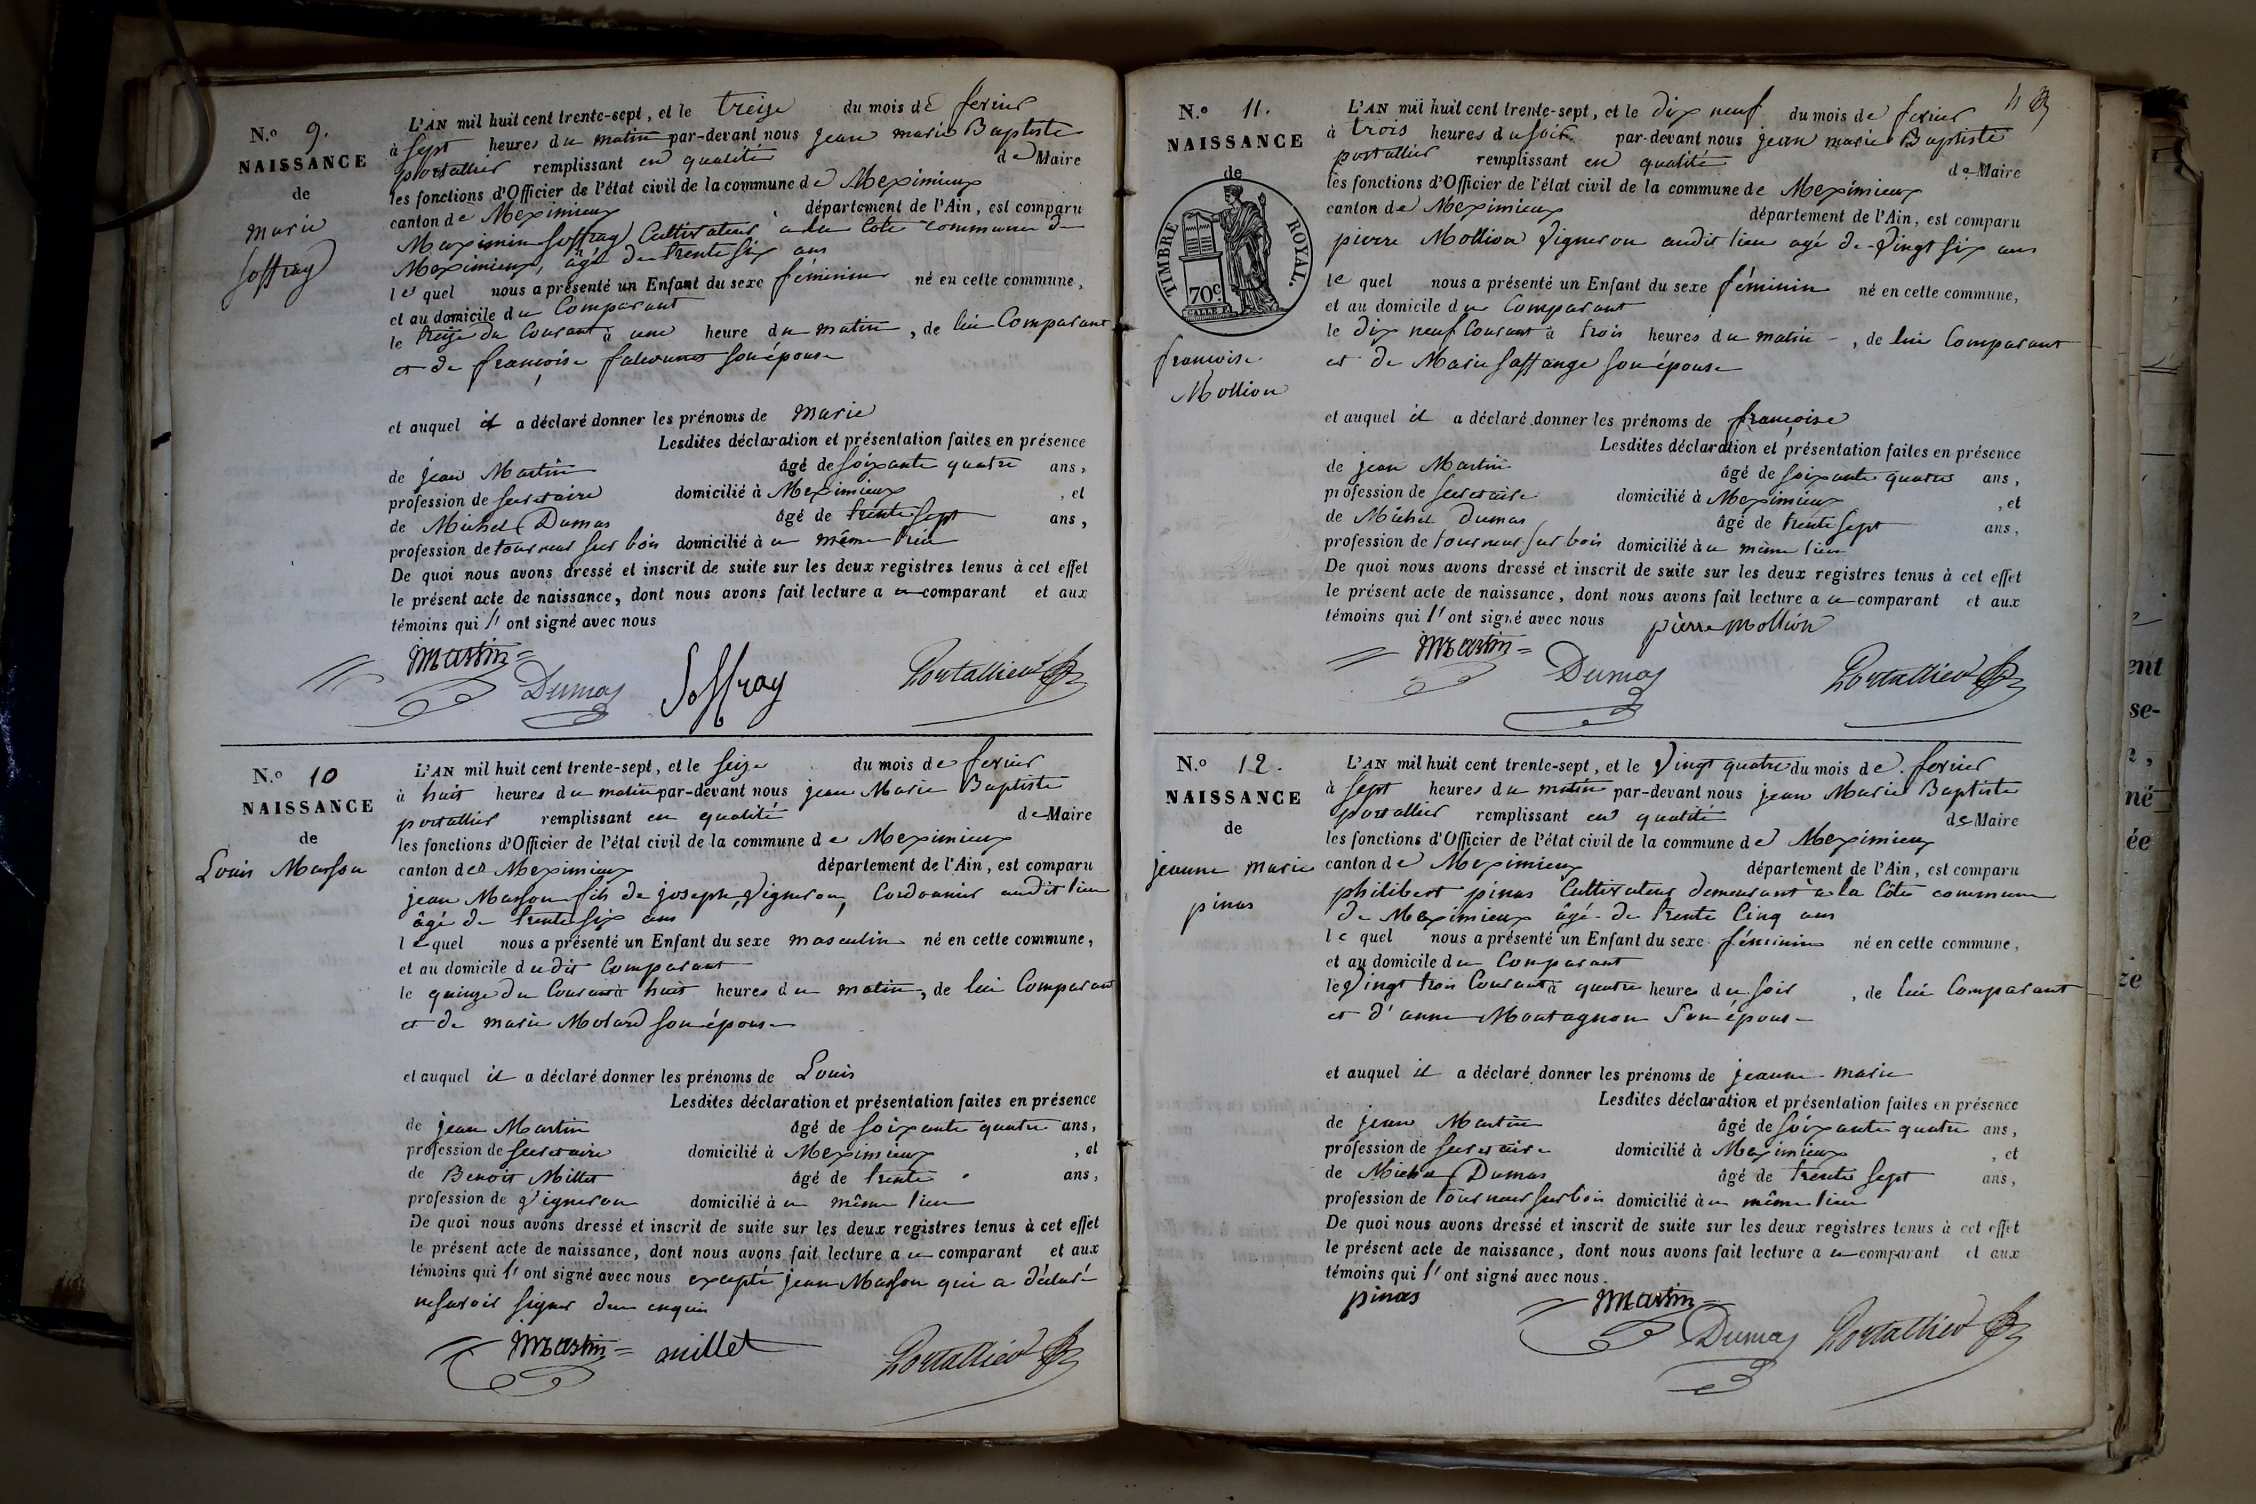 N.º 9.
NAISSANCE
de
marie
Soffray
L'AN mil huit cent trente-sept, et le treize du mois de fevrier
à sept heures du matin par-devant nous jean marie Baptiste
portallier remplissant en qualité de Maire
les fonctions d'Officier de l'état civil de la commune de Meximieux
canton de Meximieux département de l'Ain, est comparu
Maximin Soffray Cultivateur à la Côte commune de
Meximieux, âgé de trente six ans
lequel nous a présenté un Enfant du sexe féminin né en cette commune,
et au domicile du Comparant
le treize du Courant à une heure du matin, de lui Comparant
et de françoise son épouse
et auquel il a déclaré donner les prénoms de marie
Lesdites déclaration et présentation faites en présence
de jean Martin âgé de soixante quatre ans,
profession de secretaire domicilié à Meximieux, et
de Michel Dumas âgé de trente sept ans,
profession de tourneur sur bois domicilié à u même lieu
De quoi nous avons dressé et inscrit de suite sur les deux registres tenus à cet effet
le présent acte de naissance, dont nous avons fait lecture a u comparant et aux
témoins qui l' ont signé avec nous
Martin
Dumas
Soffray
Portallier
N.º 10
NAISSANCE
de
Louis Masson
L'AN mil huit cent trente-sept, et le seize du mois de fevrier
à huit heures du matin par-devant nous jean Marie Baptiste
portallier remplissant en qualité de Maire
les fonctions d'Officier de l'état civil de la commune de Meximieux
canton de Meximieux département de l'Ain, est comparu
jean Masson fils de joseph, Vigneron, Cordonnier audit lieu
âgé de trente six ans
lequel nous a présenté un Enfant du sexe masculin né en cette commune,
et au domicile dudit Comparant
le quinze du Courant à huit heures du matin, de lui Comparant
et de marie Molard son épouse
et auquel il a déclaré donner les prénoms de Louis
Lesdites déclaration et présentation faites en présence
de jean Martin âgé de soixante quatre ans,
profession de secretaire domicilié à Meximieux, et
de Benoit Millet âgé de trente ans,
profession de Vigneron domicilié à u même lieu
De quoi nous avons dressé et inscrit de suite sur les deux registres tenus à cet effet
le présent acte de naissance, dont nous avons fait lecture a u comparant et aux
témoins qui l' ont signé avec nous excepté jean Masson qui a déclaré
ne savoir signer de ce enquis
Martin
millet
Portallier
11
N.º 11.
NAISSANCE
de
TIMBRE ROYAL.
70c.
francoise
Mollion
L'AN mil huit cent trente-sept, et le dix neuf du mois de fevrier
à trois heures du soir par-devant nous jean marie Baptiste
portallier remplissant en qualité de Maire
les fonctions d'Officier de l'état civil de la commune de Meximieux
canton de Meximieux département de l'Ain, est comparu
pierre Mollion Vigneron audit lieu agé de Vingt six ans
le quel nous a présenté un Enfant du sexe féminin né en cette commune,
et au domicile du Comparant
le dix neuf Courant à trois heures du matin, de lui Comparant
et de Marie Saffange son épouse
et auquel il a déclaré donner les prénoms de françoise
Lesdites déclaration et présentation faites en présence
de jean Martin âgé de soixante quatre ans,
profession de secretaire domicilié à Meximieux, et
de Michel Dumas âgé de trente sept ans,
profession de tourneur sur bois domicilié à u même lieu
De quoi nous avons dressé et inscrit de suite sur les deux registres tenus à cet effet
le présent acte de naissance, dont nous avons fait lecture a u comparant et aux
témoins qui l' ont signé avec nous pierre Mollion
Martin
Dumas
Portallier
N.º 12.
NAISSANCE
de
jeanne marie
pinas
L'AN mil huit cent trente-sept, et le Vingt quatre du mois de fevrier
à sept heures du matin par-devant nous jean Marie Baptiste
portallier remplissant en qualité de Maire
les fonctions d'Officier de l'état civil de la commune de Meximieux
canton de Meximieux département de l'Ain, est comparu
philibert pinas Cultivateur demeurant à la Côte commune
de Meximieux âgé de trente Cinq ans
le quel nous a présenté un Enfant du sexe féminin né en cette commune,
et au domicile du Comparant
le Vingt trois Courant à quatre heures du soir, de lui Comparant
et d'anne Montagnon son épouse
et auquel il a déclaré donner les prénoms de jeanne marie
Lesdites déclaration et présentation faites en présence
de jean Martin âgé de soixante quatre ans,
profession de secretaire domicilié à Meximieux, et
de Michel Dumas âgé de trente sept ans,
profession de tourneur sur bois domicilié à u même lieu
De quoi nous avons dressé et inscrit de suite sur les deux registres tenus à cet effet
le présent acte de naissance, dont nous avons fait lecture a u comparant et aux
témoins qui l' ont signé avec nous.
pinas
Martin
Dumas
Portallier